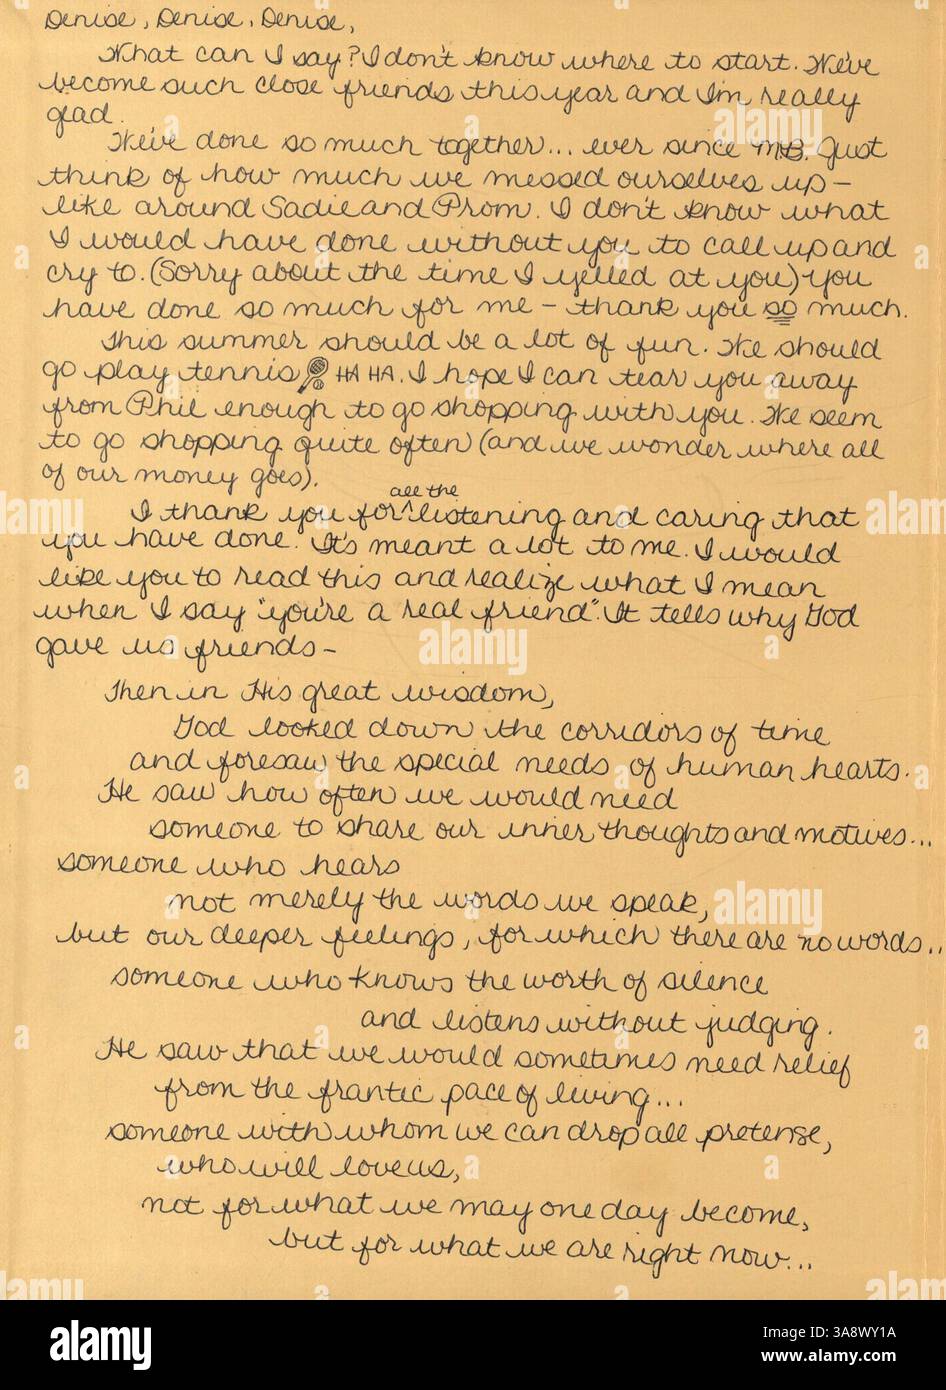 Denise, Denise, Denise,
What can I say? I don't know where to start. We've
become such close friends this year and I'm really
glad.
We've done so much together... ever since MB. Just
think of how much we messed ourselves up-
like around Sadie and Prom. I don't know what
I would have done without you to call up and
cry to. (Sorry about the time I yelled at you) you
have done so much for me - thank you so much.
This summer should be a lot of fun. We should
go play tennis HA HA. I hope I can tear you away
from Phil enough to go shopping with you. We seem
to go shopping quite often (and we wonder where all
of our money goes).
I thank you for all the listening and caring that
you have done. It's meant a lot to me. I would
like you to read this and realize what I mean
when I say "you're a real friend". It tells why God
gave us friends -
Then in His great wisdom,
God looked down the corridors of time
and foresaw the special needs of human hearts.
He saw how often we would need
someone to share our inner thoughts and motives...
someone who hears
not merely the words we speak,
but our deeper feelings, for which there are no words..
someone who knows the worth of silence
and listens without judging.
He saw that we would sometimes need relief
from the frantic pace of living...
someone with whom we can drop all pretense,
who will love us,
not for what we may one day become,
but for what we are right now...
alamy
Image ID: 3A8WY1A
www.alamy.com